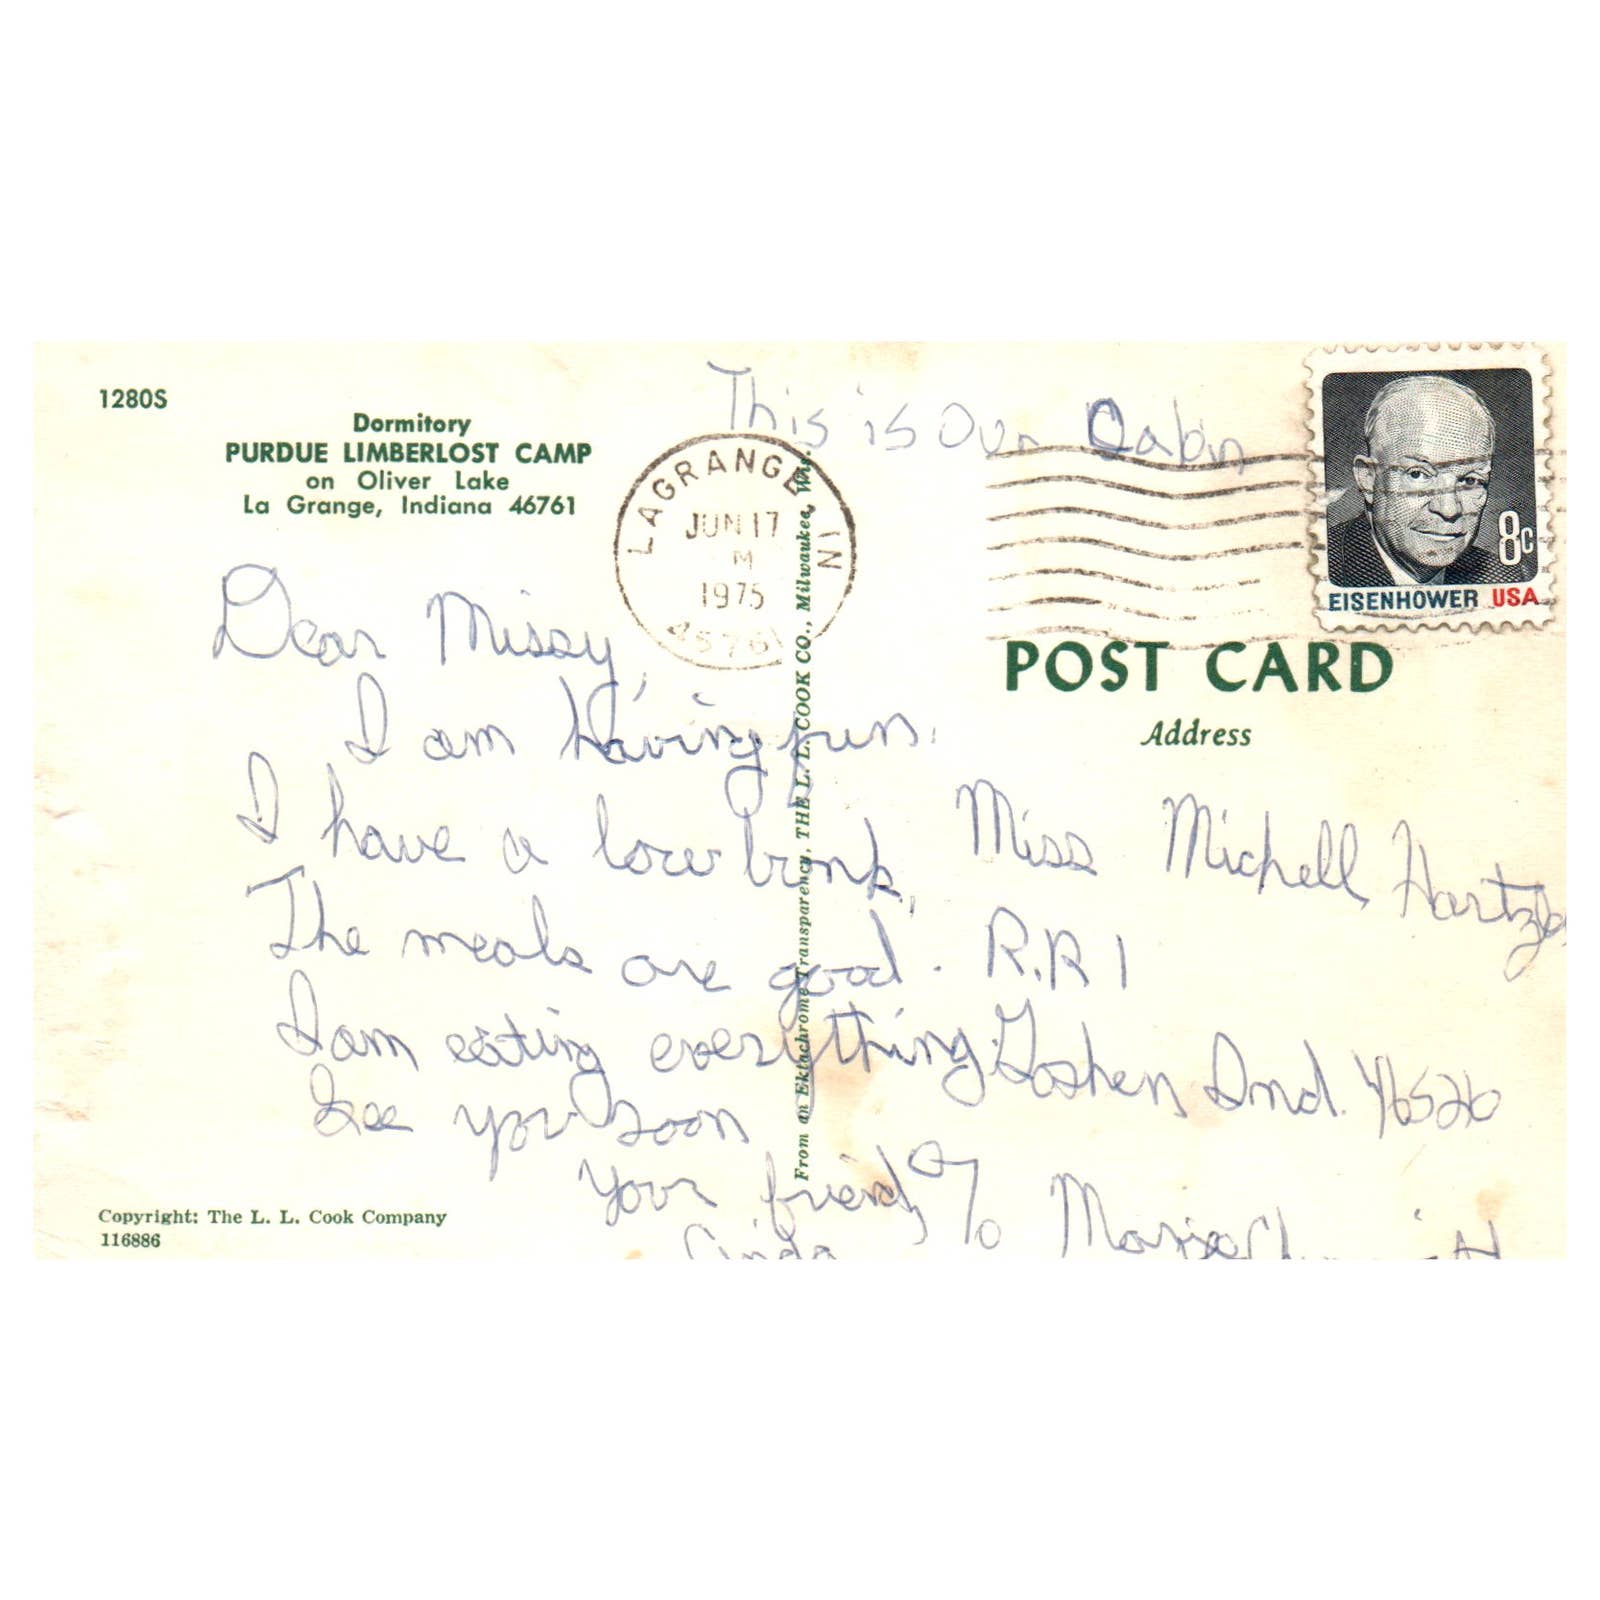 1280S
Dormitory
PURDUE LIMBERLOST CAMP
on Oliver Lake
La Grange, Indiana 46761
This is Our Cabin
LAGRANGE, IN
JUN 17
M
1975
EISENHOWER USA
8c
POST CARD
Address
Dear Missy,
I am having fun.
I have a lower bunk.
The meals are good.
I am eating everything.
See you soon
Your friend,
Linda
Miss Michell Hartzle
R.R 1
Goshen Ind. 46526
c/o
From an Ektachrome Transparency, THE L. L. COOK CO., Milwaukee, Wis.
Copyright: The L. L. Cook Company
116886